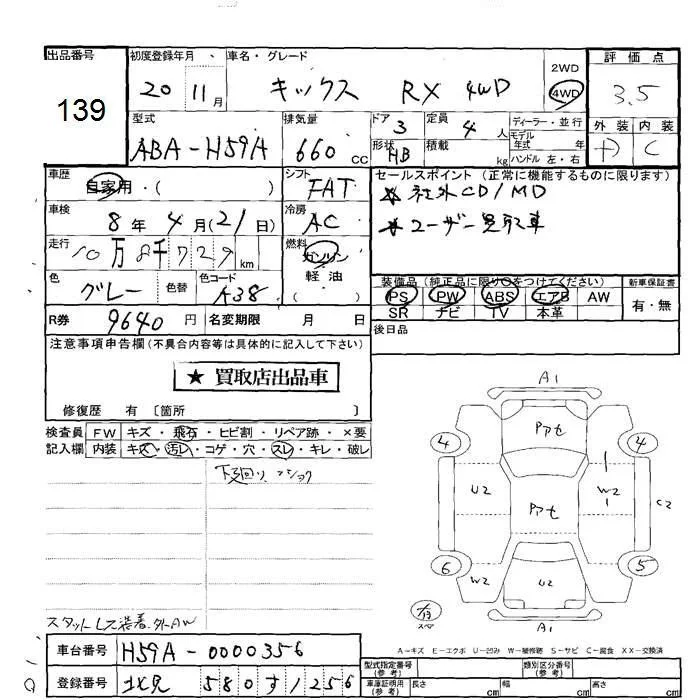 出品番号
139
初度登録年月
20 11月
車名・グレード
キックス RX 4WD
2WD
4WD
評価点
3.5
外装 内装
D C
型式
ABA-H59A
排気量
660 cc
ドア 3
形状 HB
定員 4 人
積載 kg
ディーラー・並行
モデル
年式 年
ハンドル 左・右
車歴
自家用・( )
シフト
FAT
セールスポイント (正常に機能するものに限ります)
★ 社外CD/MD
★ ユーザー買取車
車検
8年 4月(21日)
冷房
AC
走行
10万8千729km
燃料
ガソリン
軽・油
( )
色
グレー
色替
色コード
A38
装備品(純正品に限り○をつけてください)
PS PW ABS エアB AW
SR ナビ TV 本革
新車保証書
有・無
R券 9640円
名変期限 月 日
後日品
注意事項申告欄(不具合内容等は具体的に記入して下さい)
★ 買取店出品車
修復歴 有 〔箇所 〕
検査員 FW キズ・飛石・ヒビ割・リペア跡・×要
記入欄 内装 キズ・汚レ・コゲ・穴・スレ・キレ・破レ
下廻り
A1
Pアセ
4 4
U2
Pアセ
W2
C2
6 5
W2
U2
A1
スペア
スタットレス装着、外AW
A-キズ E-エクボ U-凹み W-補修跡 S-サビ C-腐食 XX-交換済
車台番号 H59A-0000356
登録番号 北見 580す1256
型式指定番号
(参考)
類別区分番号
(参考)
車庫証明用
(参考)
長さ cm 幅 cm 高さ cm